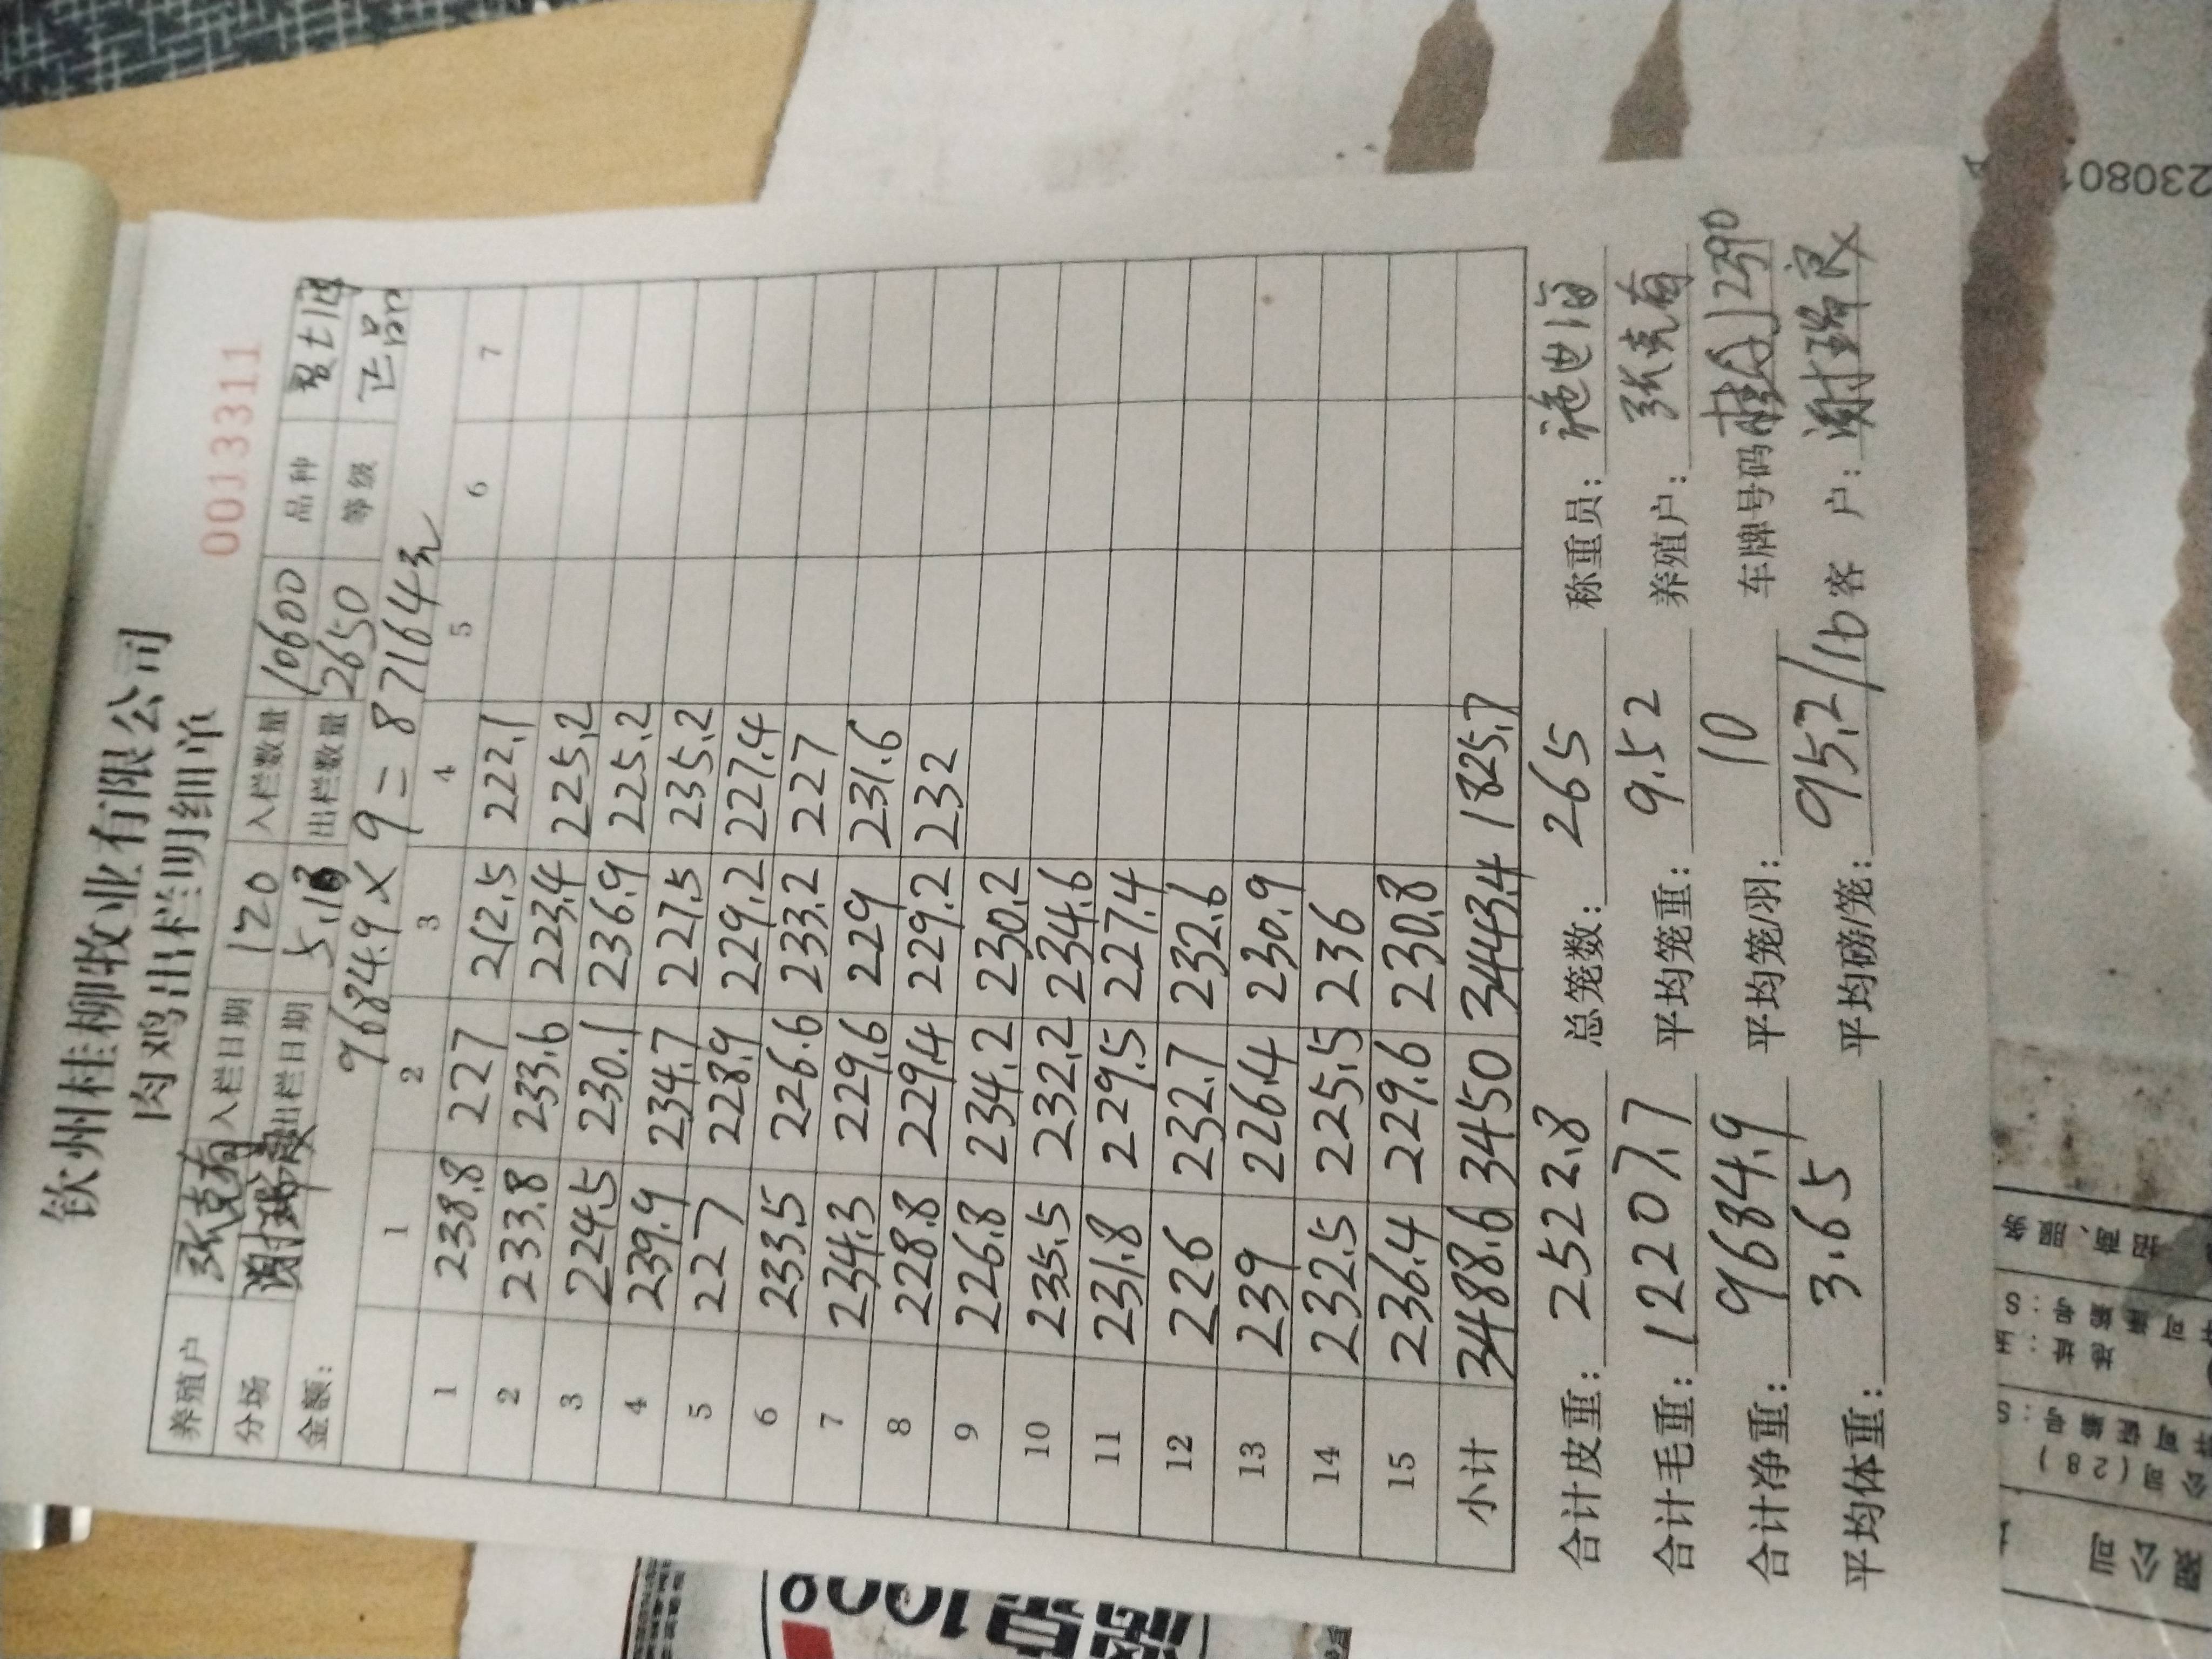 钦州桂柳牧业有限公司
肉鸡出栏明细单
0013311
养殖户 张克有 入栏日期 120 入栏数量 10600 品种
分场 出栏日期 出栏数量 2650 等级 正品
金额: 9684.9×9=87164元
1 2 3 4 5 6 7
1 238.8 227 212.5 222.1
2 233.8 233.6 223.4 225.2
3 224.5 230.1 236.9 225.2
4 239.9 234.7 227.5 235.2
5 227 228.9 229.2 227.4
6 233.5 226.6 233.2 227
7 234.3 229.6 229 231.6
8 228.8 229.4 229.2 232
9 226.8 234.2 230.2
10 235.5 232.2 234.6
11 231.8 229.5 227.4
12 226 232.7 232.6
13 239 226.4 230.9
14 232.5 225.5 236
15 236.4 229.6 230.8
小计 3488.6 3450 3443.4 1825.7
合计皮重: 2522.8 总笼数: 265 称重员: 施世海
合计毛重: 12207.7 平均笼重: 9.52 养殖户: 张克有
合计净重: 9684.9 平均笼/羽: 10 车牌号码
平均体重: 3.65 平均磅/笼: 95.2/1b 客 户:
23080